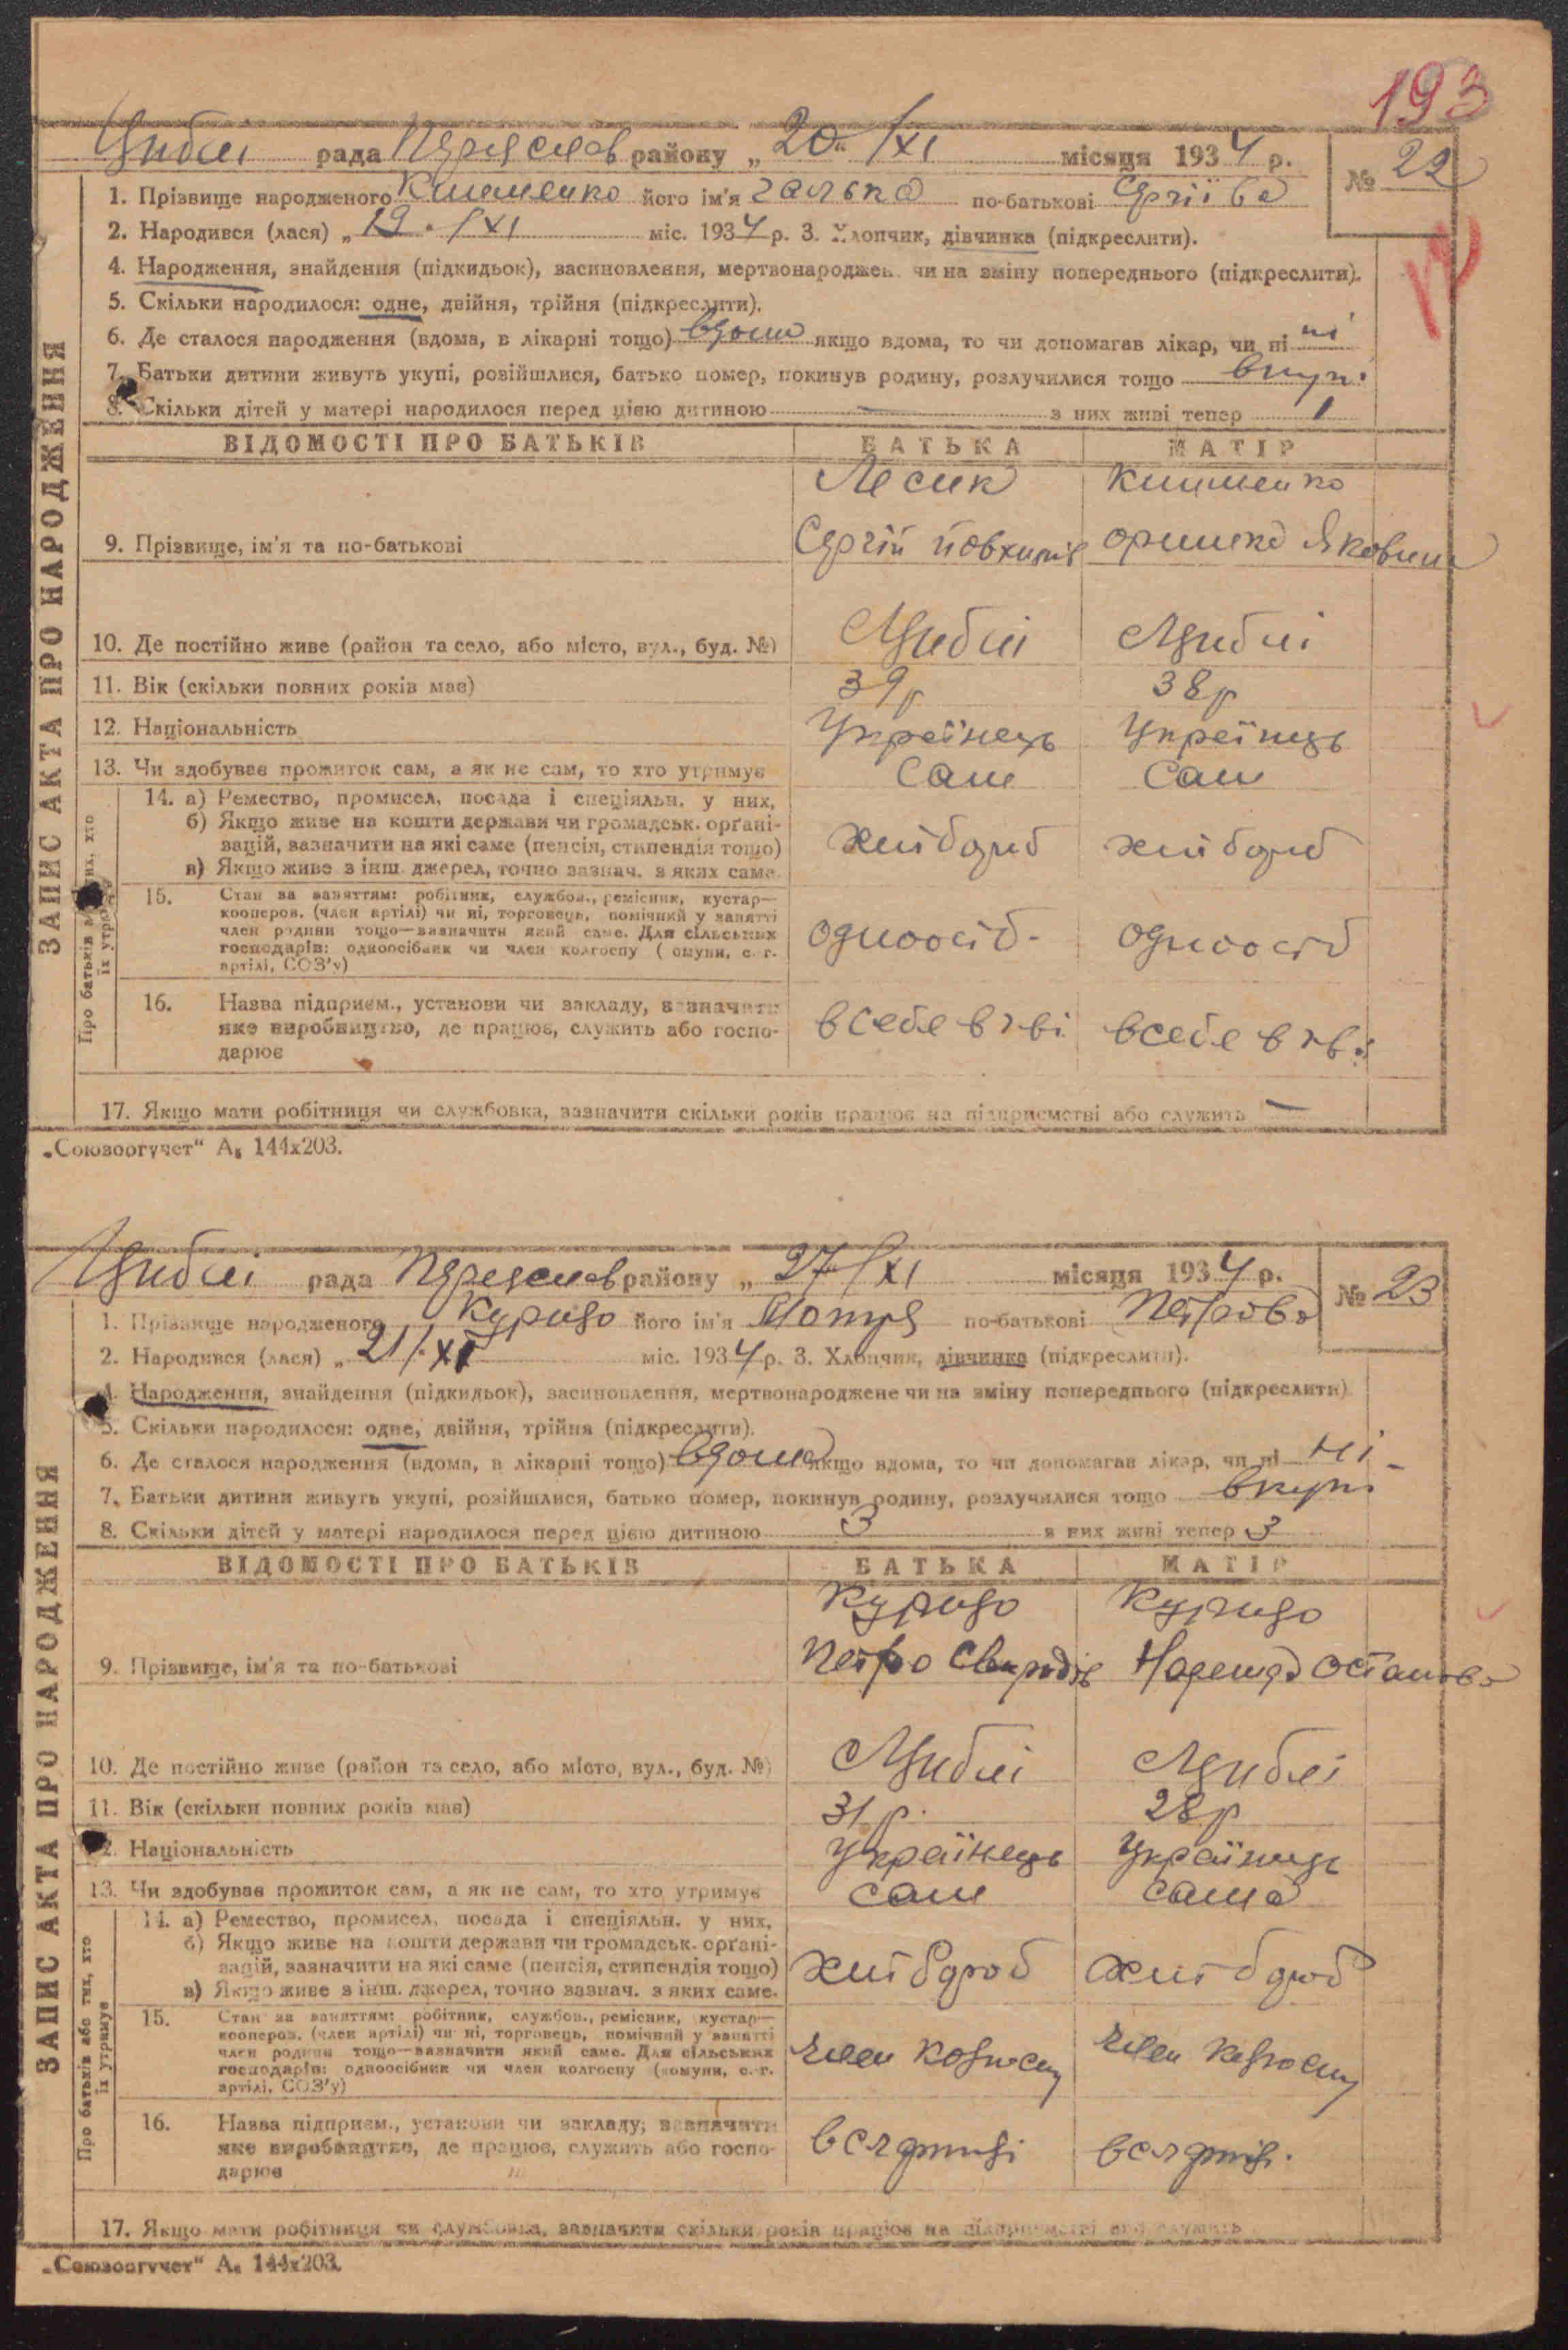 193
Циблі рада Переяслав району „ 20 " /XI місяця 1934 р.
№ 22
1. Прізвище народженого Клименко його ім'я Галька по-батькові Сергіїва
2. Народився (лася) „ 19. /XI міс. 1934 р. 3. Хлопчик, дівчинка (підкреслити).
4. Народження, знайдення (підкидьок), засиновлення, мертвонароджен. чи на зміну попереднього (підкреслити).
5. Скільки народилося: одне, двійня, трійня (підкреслити).
6. Де сталося народження (вдома, в лікарні тощо) вдома якщо вдома, то чи допомагав лікар, чи ні ні
7. Батьки дитини живуть укупі, розійшлися, батько помер, покинув родину, розлучилися тощо вкупі
8. Скільки дітей у матері народилося перед цією дитиною — з них живі тепер 1
ЗАПИС АКТА ПРО НАРОДЖЕННЯ
ВІДОМОСТІ ПРО БАТЬКІВ БАТЬКА МАТІР
Лесик Клименко
9. Прізвище, ім'я та по-батькові Сергій Йовхимів Яковна
10. Де постійно живе (район та село, або місто, вул., буд. №) Циблі Циблі
11. Вік (скільки повних років має) 39 р 38 р
12. Національність Українець Українець
13. Чи здобуває прожиток сам, а як не сам, то хто утримує Сам Сам
Про батьків або тих, хто їх утримує
14. а) Ремество, промисел, посада і спеціяльн. у них,
б) Якщо живе на кошти держави чи громадськ. орґані-
зацій, зазначити на які саме (пенсія, стипендія тощо) хлібороб хлібороб
в) Якщо живе з інш. джерел, точно зазнач. з яких саме.
15. Стан за заняттям: робітник, службов., ремісник, кустар—
кооперов. (член артілі) чи ні, торговець, помічний у занятті
член родини тощо—зазначити який саме. Для сільських одноосіб одноосіб
господарів: одноосібник чи член колгоспу (комуни, с.-г.
артілі, СОЗ'у)
16. Назва підприєм., установи чи закладу, зазначити
яке виробництво, де працює, служить або госпо- в себе в в себе в
дарює
17. Якщо мати робітниця чи службовка, зазначити скільки років працює на підприємстві або служить —
„Союзоргучет" А₅ 144х203.
Циблі рада Переяслав району „ 27 /XI місяця 1934 р.
№ 23
1. Прізвище народженого його ім'я Мотря по-батькові Петрова
2. Народився (лася) „ 21/XI міс. 1934 р. 3. Хлопчик, дівчинка (підкреслити).
4. Народження, знайдення (підкидьок), засиновлення, мертвонароджене чи на зміну попереднього (підкреслити)
5. Скільки народилося: одне, двійня, трійня (підкреслити).
6. Де сталося народження (вдома, в лікарні тощо) вдома якщо вдома, то чи допомагав лікар, чи ні ні
7. Батьки дитини живуть укупі, розійшлися, батько помер, покинув родину, розлучилися тощо вкупі
8. Скільки дітей у матері народилося перед цією дитиною 3 з них живі тепер 3
ЗАПИС АКТА ПРО НАРОДЖЕННЯ
ВІДОМОСТІ ПРО БАТЬКІВ БАТЬКА МАТІР
9. Прізвище, ім'я та по-батькові Петро Свиридів Остапова
10. Де постійно живе (район та село, або місто, вул., буд. №) Циблі Циблі
11. Вік (скільки повних років має) 31 р. 28 р
12. Національність Українець Українець
13. Чи здобуває прожиток сам, а як не сам, то хто утримує сам сама
Про батьків або тих, хто їх утримує
14. а) Ремество, промисел, посада і спеціяльн. у них,
б) Якщо живе на кошти держави чи громадськ. орґані-
зацій, зазначити на які саме (пенсія, стипендія тощо) хлібороб хлібороб
в) Якщо живе з інш. джерел, точно зазнач. з яких саме.
15. Стан за заняттям: робітник, службов., ремісник, кустар—
кооперов. (член артілі) чи ні, торговець, помічний у занятті
член родини тощо—зазначити який саме. Для сільських член колгоспу член колгоспу
господарів: одноосібник чи член колгоспу (комуни, с.-г.
артілі, СОЗ'у)
16. Назва підприєм., установи чи закладу; зазначити
яке виробництво, де працює, служить або госпо-
дарює
17. Якщо мати робітниця чи службовка, зазначити скільки років працює на підприємстві або служить
„Союзоргучет" А₅ 144х203.